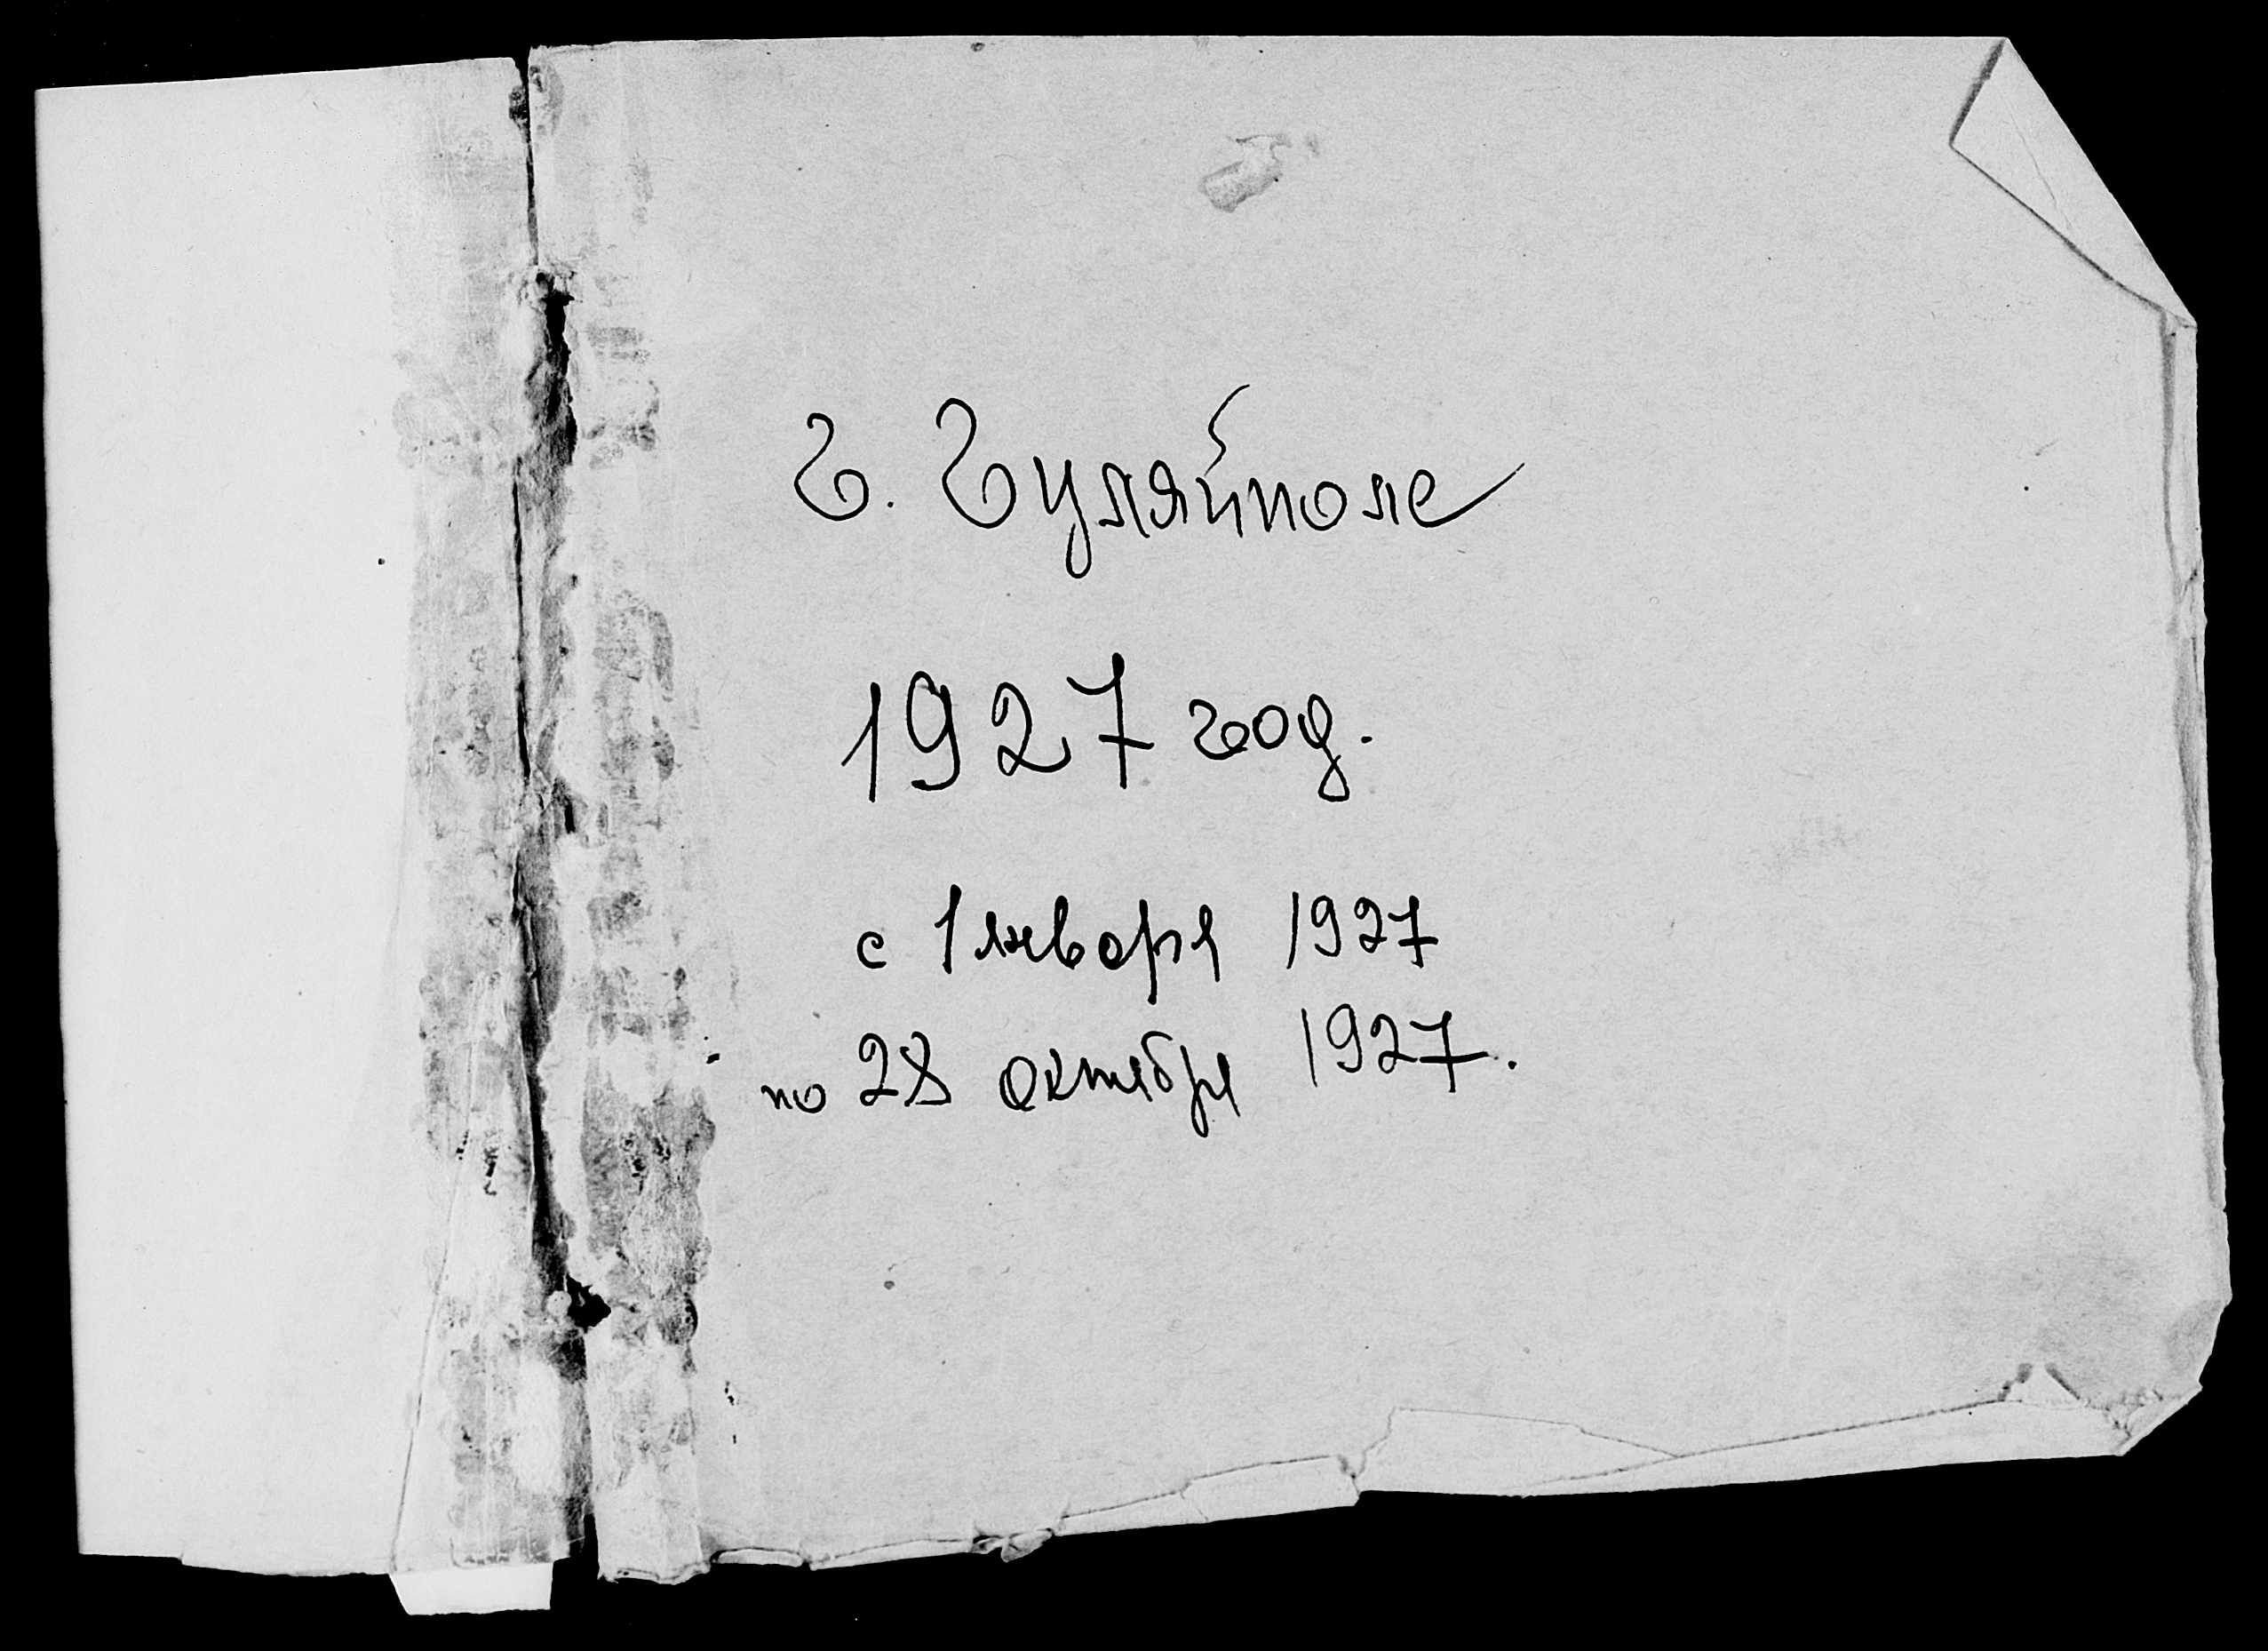 г. Гуляйполе
1927 год.
с 1 января 1927
по 28 октября 1927.